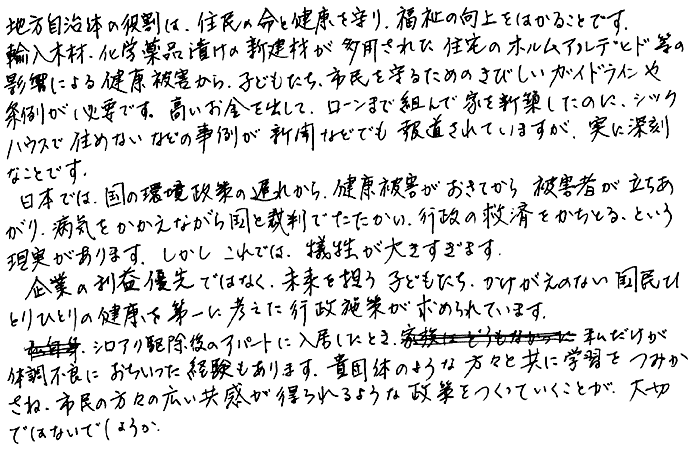 地方自治体の役割は、住民の命と健康を守り、福祉の向上をはかることです。
輸入木材、化学薬品漬けの新建材が多用された住宅のホルムアルデヒド等の
影響による健康被害から、子どもたち、市民を守るためのきびしいガイドラインや
条例が必要です。高いお金を出して、ローンまで組んで家を新築したのに、シック
ハウスで住めないなどの事例が新聞などでも報道されていますが、実に深刻
なことです。
日本では、国の環境政策の遅れから、健康被害がおきてから被害者が立ちあ
がり、病気をかかえながら国と裁判でたたかい、行政の救済をかちとる、という
現実があります。しかしこれでは、犠牲が大きすぎます。
企業の利益優先ではなく、未来を担う子どもたち、かけがえのない国民ひ
とりひとりの健康を第一に考えた行政施策が求められています。
シロアリ駆除後のアパートに入居したとき、私だけが
体調不良におちいった経験もあります。貴団体のような方々と共に学習をつみか
さね、市民の方々の広い共感が得られるような政策をつくっていくことが、大切
ではないでしょうか。